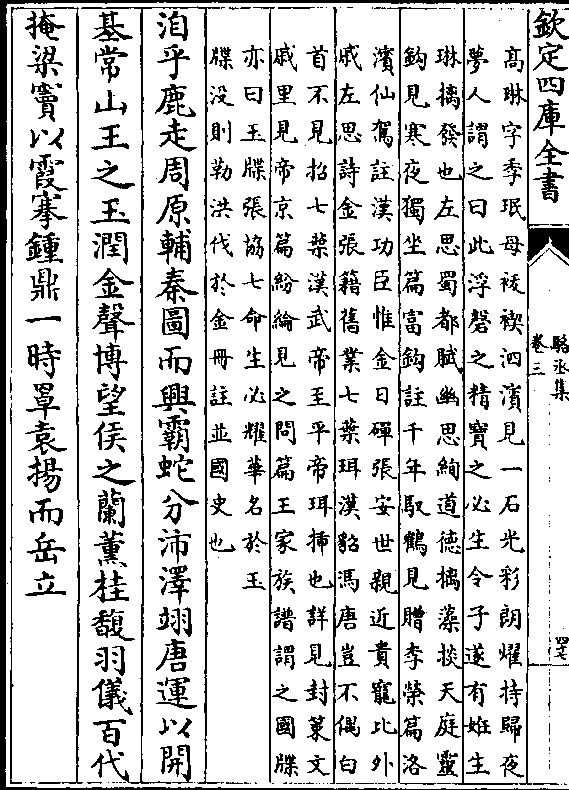 欽定四庫全書
駱丞集
卷三
高琳字季珉母祓禊泗濱見一石光彩朗耀持歸夜
夢人謂之曰此浮磬之精寶之必生令子遂有娠生
琳摛發也左思蜀都賦幽思絢道德摛藻掞天庭靈
鈎見寒夜獨坐篇富鈎註千年馭鶴見贈李榮篇洛
濱仙駕註漢功臣惟金日磾張安世親近貴寵比外
戚左思詩金張籍舊業七葉珥漢貂馮唐豈不偶白
首不見招七葉漢武帝至平帝珥插也詳見封菓文
戚里見帝京篇紛綸見之問篇王家族譜謂之國牒
亦曰玉牒張協七命生必耀華名於玉
牒没則勒洪代於金冊註並國史也
洎乎鹿走周原輔秦圖而興霸蛇分沛澤翊唐運以開
基常山王之玉潤金聲博望侯之蘭薰桂馥羽儀百代
掩梁竇以霞搴鍾鼎一時罩袁揚而岳立